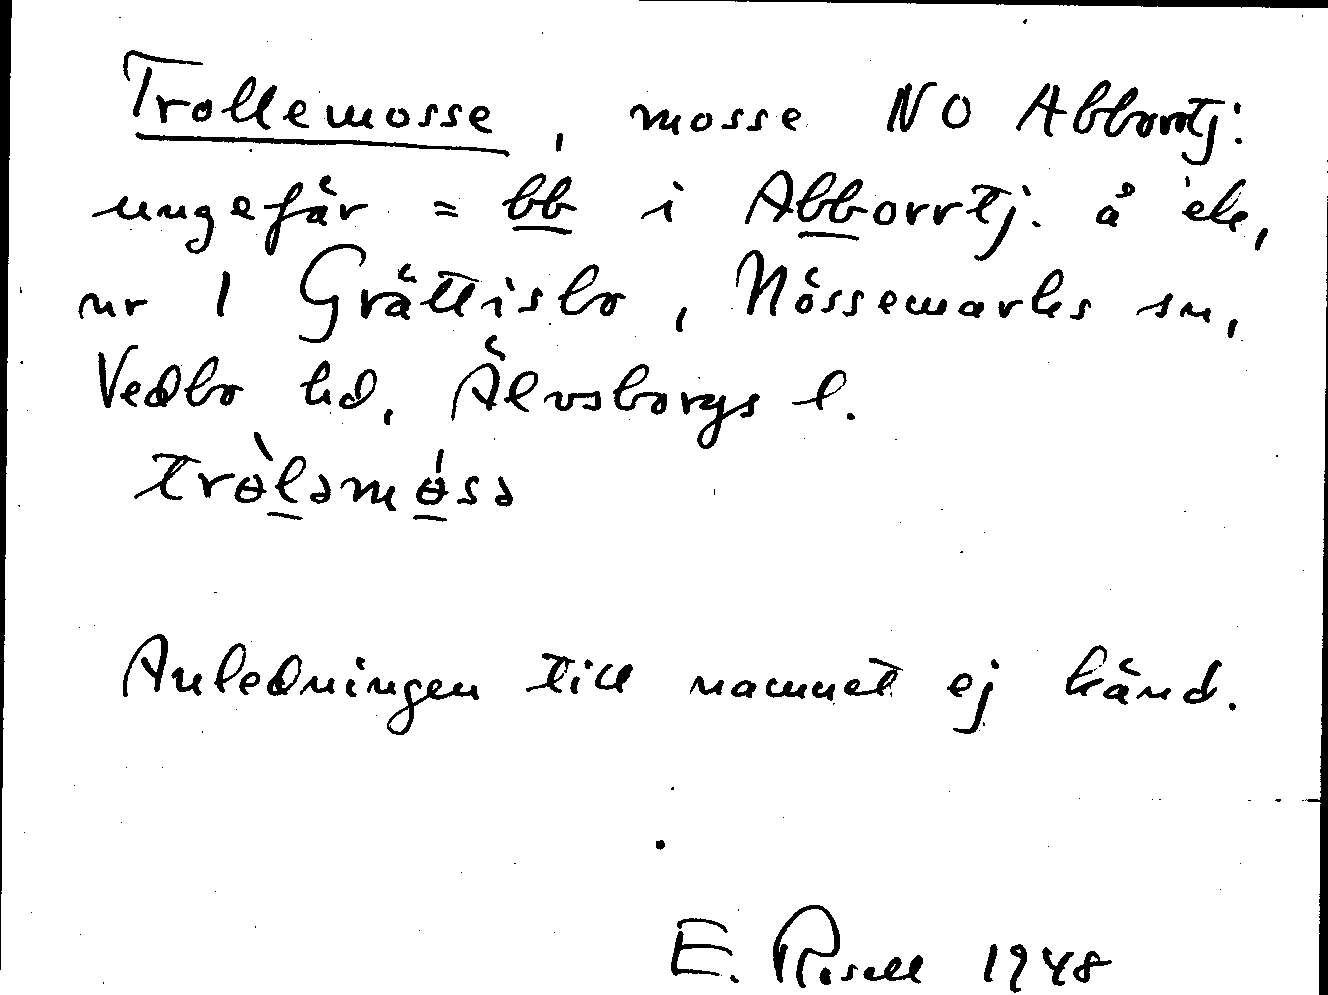 Trollemosse, mosse NO Abborrtj.
ungefär = bb i Abborrtj. å ek,
nr 1 Grättisbo, Nössemarks sn,
Vedbo hd, Älvsborgs l.
trɵ̀lǝmɵ́sǝ
Anledningen till namnet ej känd.
E. Risell 1948